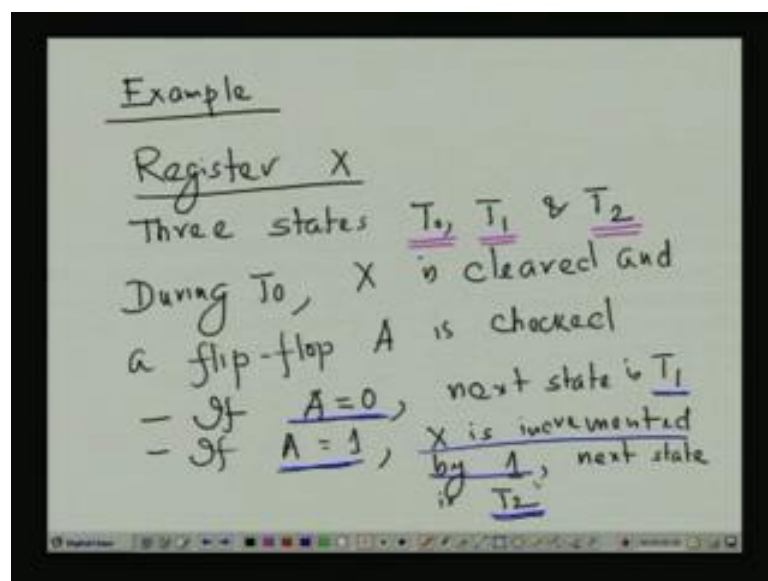 Example
Register X
Three states T₀, T₁ & T₂
During T₀, X is cleared and
a flip-flop A is checked
- If A = 0, next state is T₁
- If A = 1, X is incremented
by 1, next state
is T₂